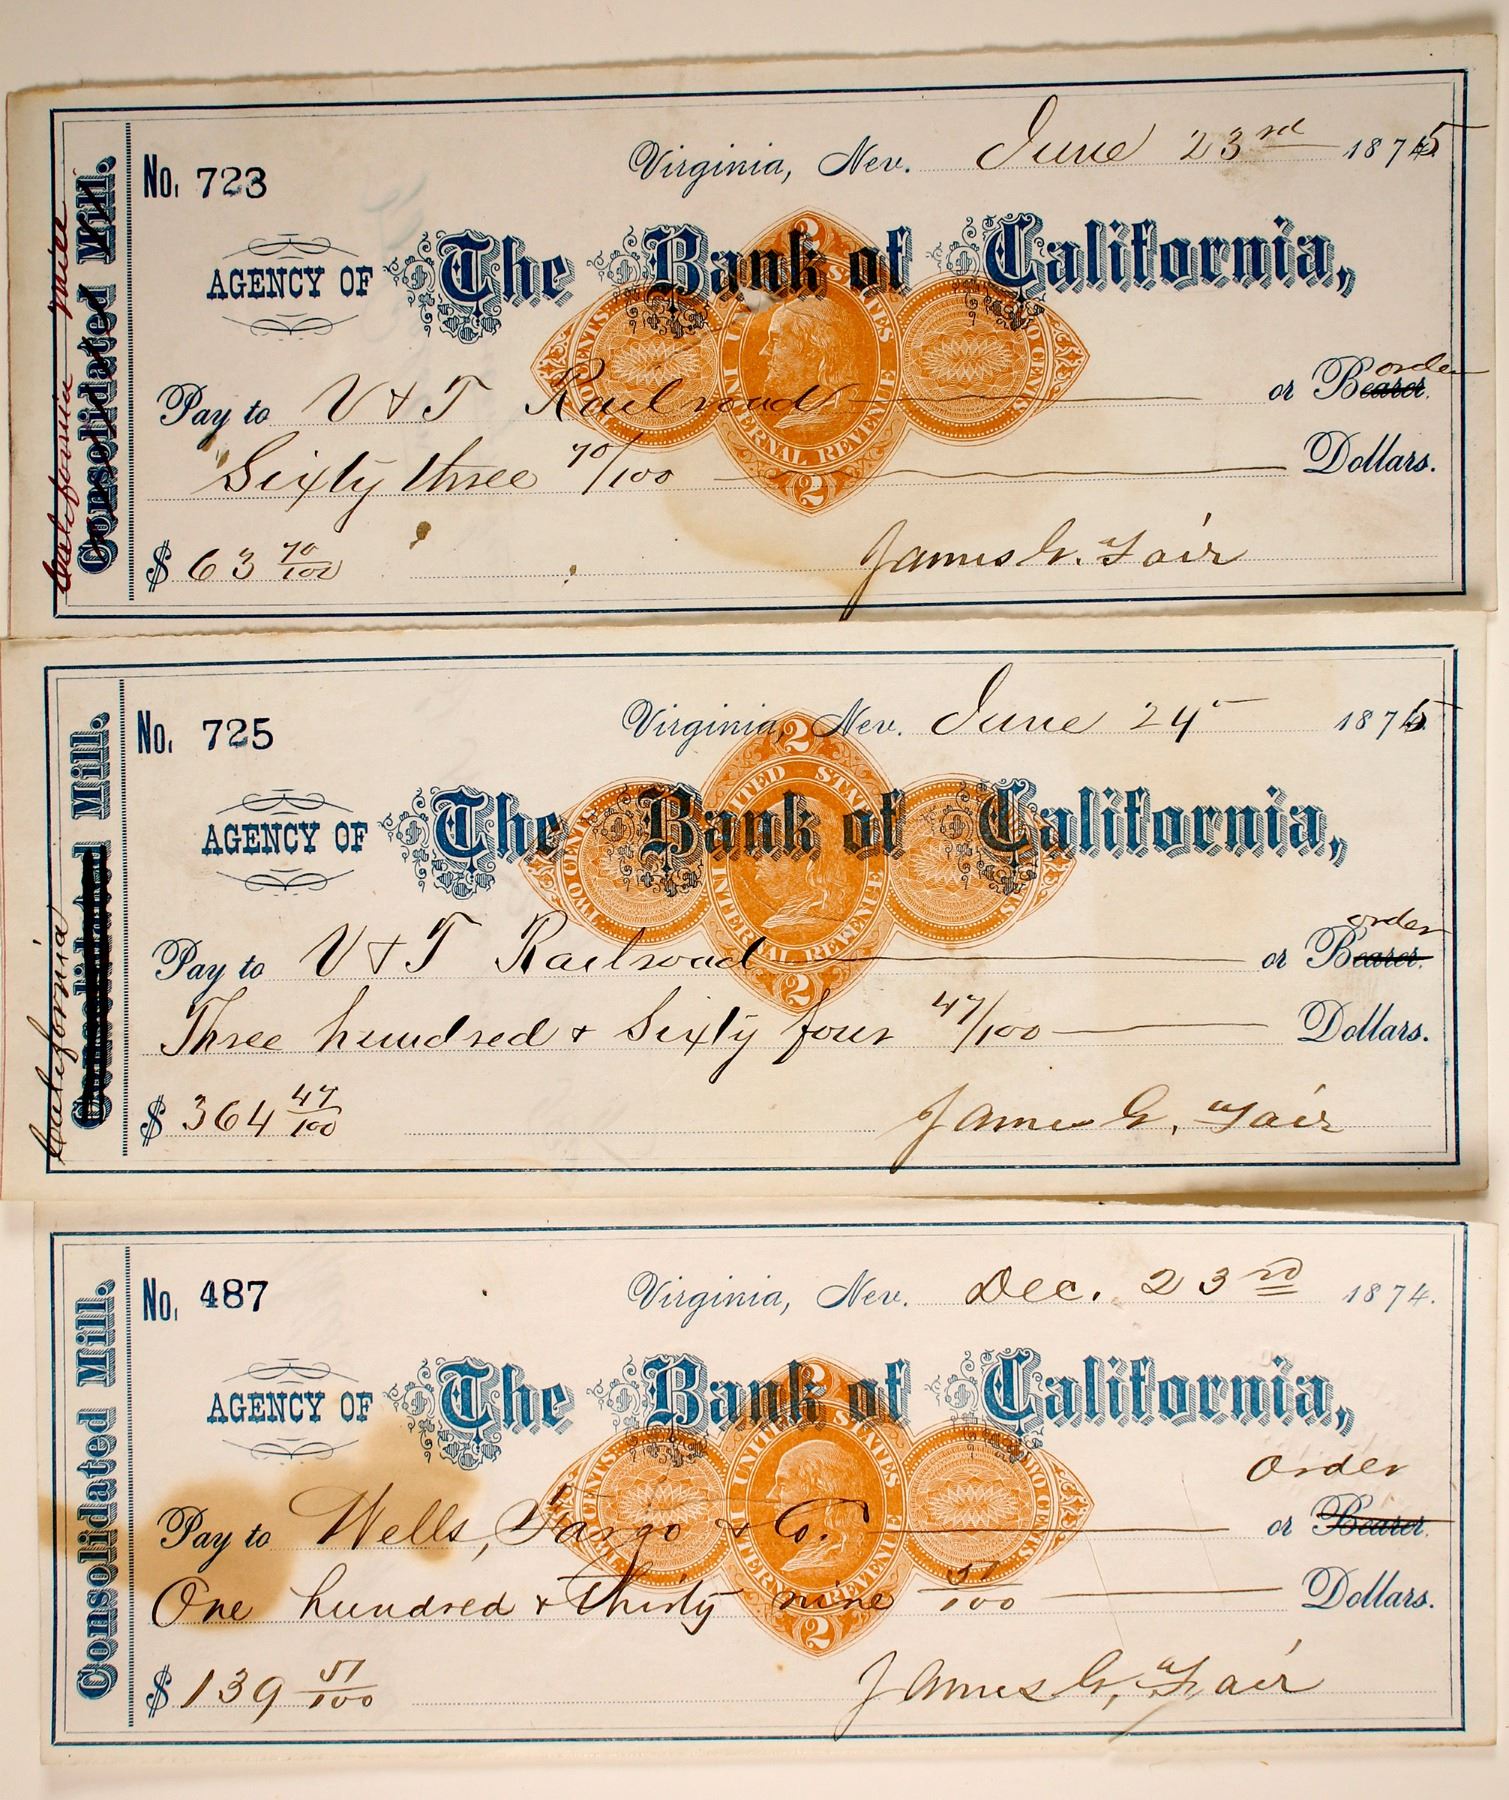 No. 723
Virginia, Nev. June 23rd 1875
AGENCY OF The Bank of California,
Pay to V & T Railroad or Bearer. order
Sixty three 70/100 Dollars.
$ 63 70/100
James G. Fair
Consolidated Mill.
California Mill
2
UNITED STATES
INTERNAL REVENUE
TWO CENTS.
TWO CENTS.
2
No. 725
Virginia, Nev. June 24 1875
AGENCY OF The Bank of California,
Pay to V & T Railroad or Bearer. order
Three hundred & Sixty four 47/100 Dollars.
$ 364 47/100
James G. Fair
Consolidated Mill.
California
2
UNITED STATES
INTERNAL REVENUE
TWO CENTS.
TWO CENTS.
2
No. 487
Virginia, Nev. Dec. 23rd 1874.
AGENCY OF The Bank of California,
Pay to Wells, Fargo & Co. or Bearer. Order
One hundred & Thirty nine 51/100 Dollars.
$ 139 51/100
James G. Fair
Consolidated Mill.
2
UNITED STATES
INTERNAL REVENUE
TWO CENTS.
TWO CENTS.
2